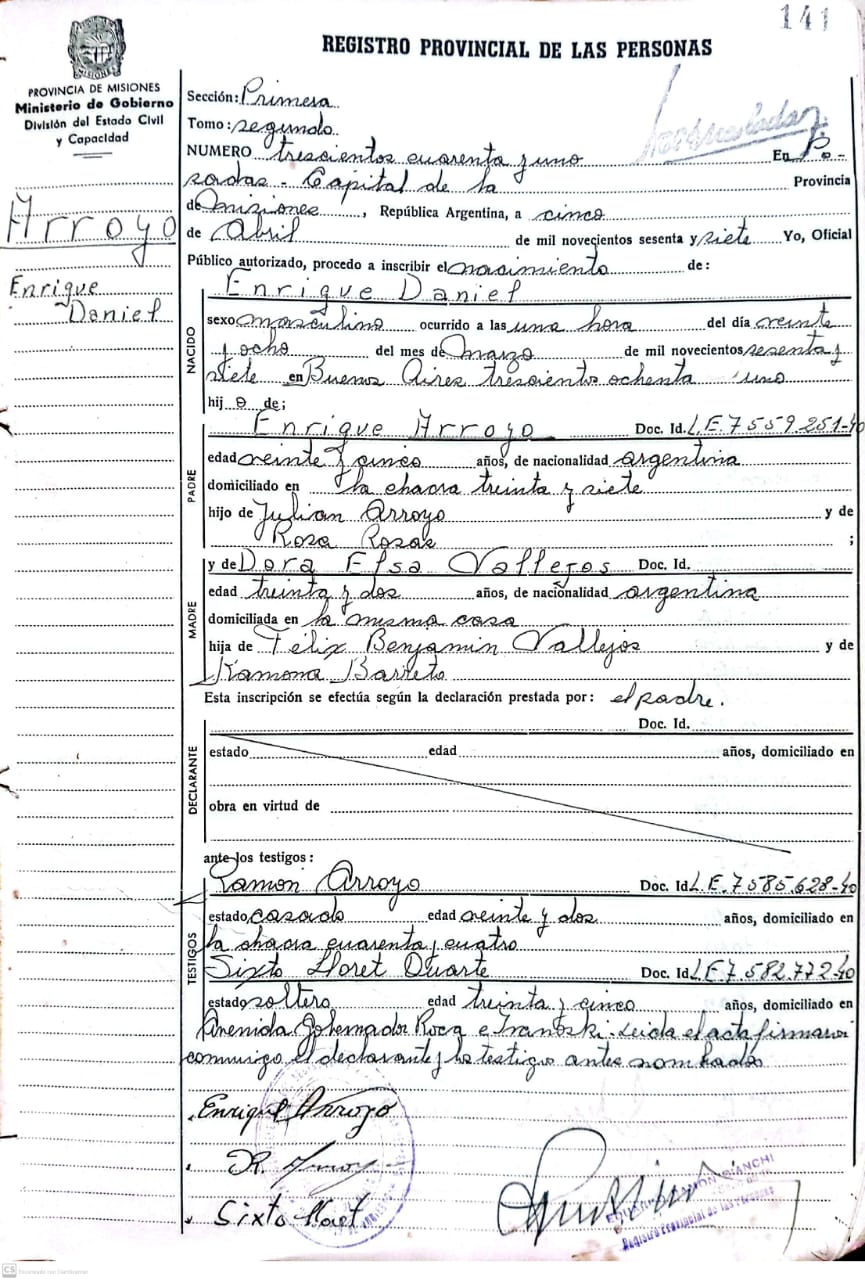 141
REGISTRO PROVINCIAL DE LAS PERSONAS
PROVINCIA DE MISIONES
Ministerio de Gobierno
División del Estado Civil
y Capacidad
Arroyo
Enrique
Daniel
Sección: Primera
Tomo: segundo
NUMERO trescientos cuarenta y uno En Po-
sadas - Capital de la Provincia
de Misiones, República Argentina, a cinco
de Abril de mil novecientos sesenta y siete Yo, Oficial
Público autorizado, procedo a inscribir el nacimiento de:
NACIDO
Enrique Daniel
sexo masculino ocurrido a las una hora del día veinte
y ocho del mes de Marzo de mil novecientos sesenta y
siete en Buenos Aires trescientos ochenta uno
hijo de;
PADRE
Enrique Arroyo Doc. Id. L.E.7559.251-40
edad veinte y cinco años, de nacionalidad argentina
domiciliado en la chacra treinta y siete
hijo de Julian Arroyo y de
Rosa Rosas ;
MADRE
y de Dora Elsa Vallejos Doc. Id.
edad treinta y dos años, de nacionalidad argentina
domiciliada en la misma casa
hija de Félix Benjamin Vallejos y de
Ramona Barreto
Esta inscripción se efectúa según la declaración prestada por: el padre.
DECLARANTE
Doc. Id.
estado edad años, domiciliado en
obra en virtud de
ante los testigos:
TESTIGOS
Ramon Arroyo Doc. Id. L.E.7585.628-40
estado casado edad veinte y dos años, domiciliado en
la chacra cuarenta y cuatro
Sixto Lloret Duarte Doc. Id. L.E.7.582.772-40
estado soltero edad treinta y cinco años, domiciliado en
Avenida Gobernador Roca e Leida el acta firman
conmigo el declarante y los testigo antes nombrados
Enrique Arroyo
R. Arroyo
Sixto Lloret
BIANCHI
Registro Provincial de las Personas
CS